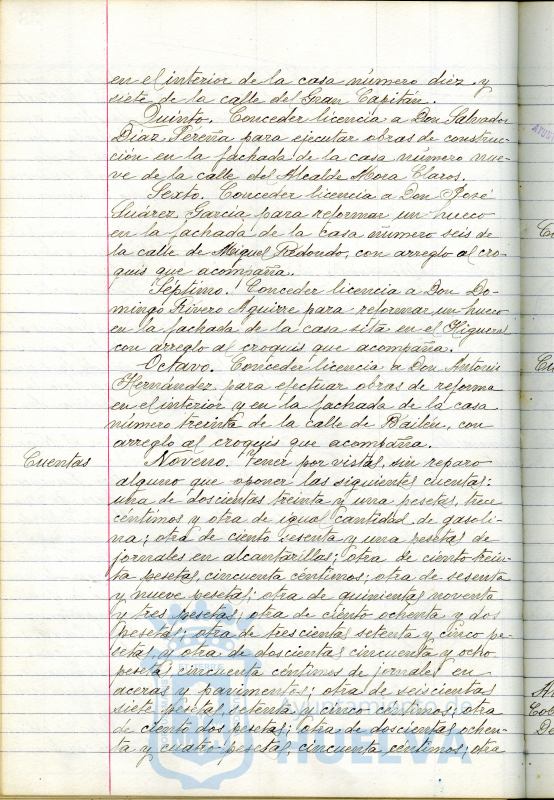 en el interior de la casa número diez y
siete de la calle del Gran Capitán.
Quinto. Conceder licencia a Don Salvador
Díaz Pereña para ejecutar obras de construc-
ción en la fachada de la casa número nue-
ve de la calle del Alcalde Mora Claros.
Sexto. Conceder licencia a Don José
Suárez García para reformar un hueco
en la fachada de la casa número seis de
la calle de Miguel Redondo, con arreglo al cro-
quis que acompaña.
Séptimo. Conceder licencia a Don Do-
mingo Rivero Aguirre para reformar un hueco
en la fachada de la casa sita en el Higueral
con arreglo al croquis que acompaña.
Octavo. Conceder licencia a Don Antonio
Hernández para efectuar obras de reforma
en el interior y en la fachada de la casa
número treinta de la calle de Bailén, con
arreglo al croquis que acompaña.
Cuentas
Noveno. Tener por vistas, sin reparo
alguno que oponer las siguientes cuentas:
una de doscientas treinta y una pesetas, trece
céntimos y otra de igual cantidad de gasoli-
na; otra de ciento sesenta y una pesetas de
jornales en alcantarillas; otra de ciento trein-
ta pesetas, cincuenta céntimos; otra de sesenta
y nueve pesetas; otra de quinientas noventa
y tres pesetas; otra de ciento ochenta y dos
pesetas; otra de trescientas setenta y cinco pe-
setas y otra de doscientas cincuenta y ocho
pesetas cincuenta céntimos de jornales en
aceras y pavimentos; otra de seiscientas
siete pesetas setenta y cinco céntimos; otra
de ciento dos pesetas; otra de doscientas ochen-
ta y cuatro pesetas, cincuenta céntimos; otra
Ayuntamiento de
HUELVA